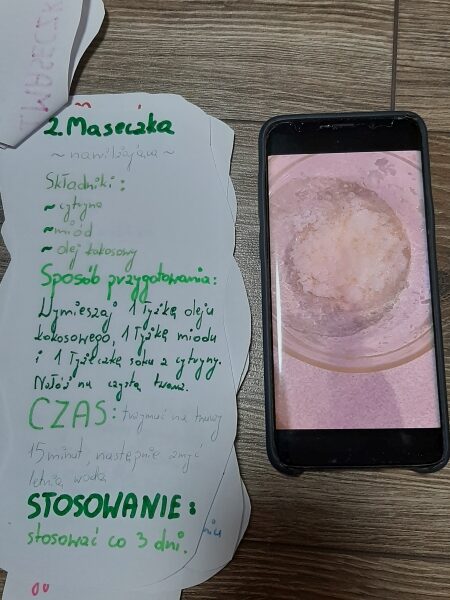 2. Maseczka
~ nawilżająca ~
Składniki:
~ cytryna
~ miód
~ olej kokosowy
Sposób przygotowania:
Wymieszaj 1 łyżkę oleju
kokosowego, 1 łyżkę miodu
i 1 łyżeczkę soku z cytryny.
Nałóż na czystą twarz.
CZAS: trzymać na twarzy
15 minut, następnie zmyć
letnią wodą
STOSOWANIE:
stosować co 3 dni.